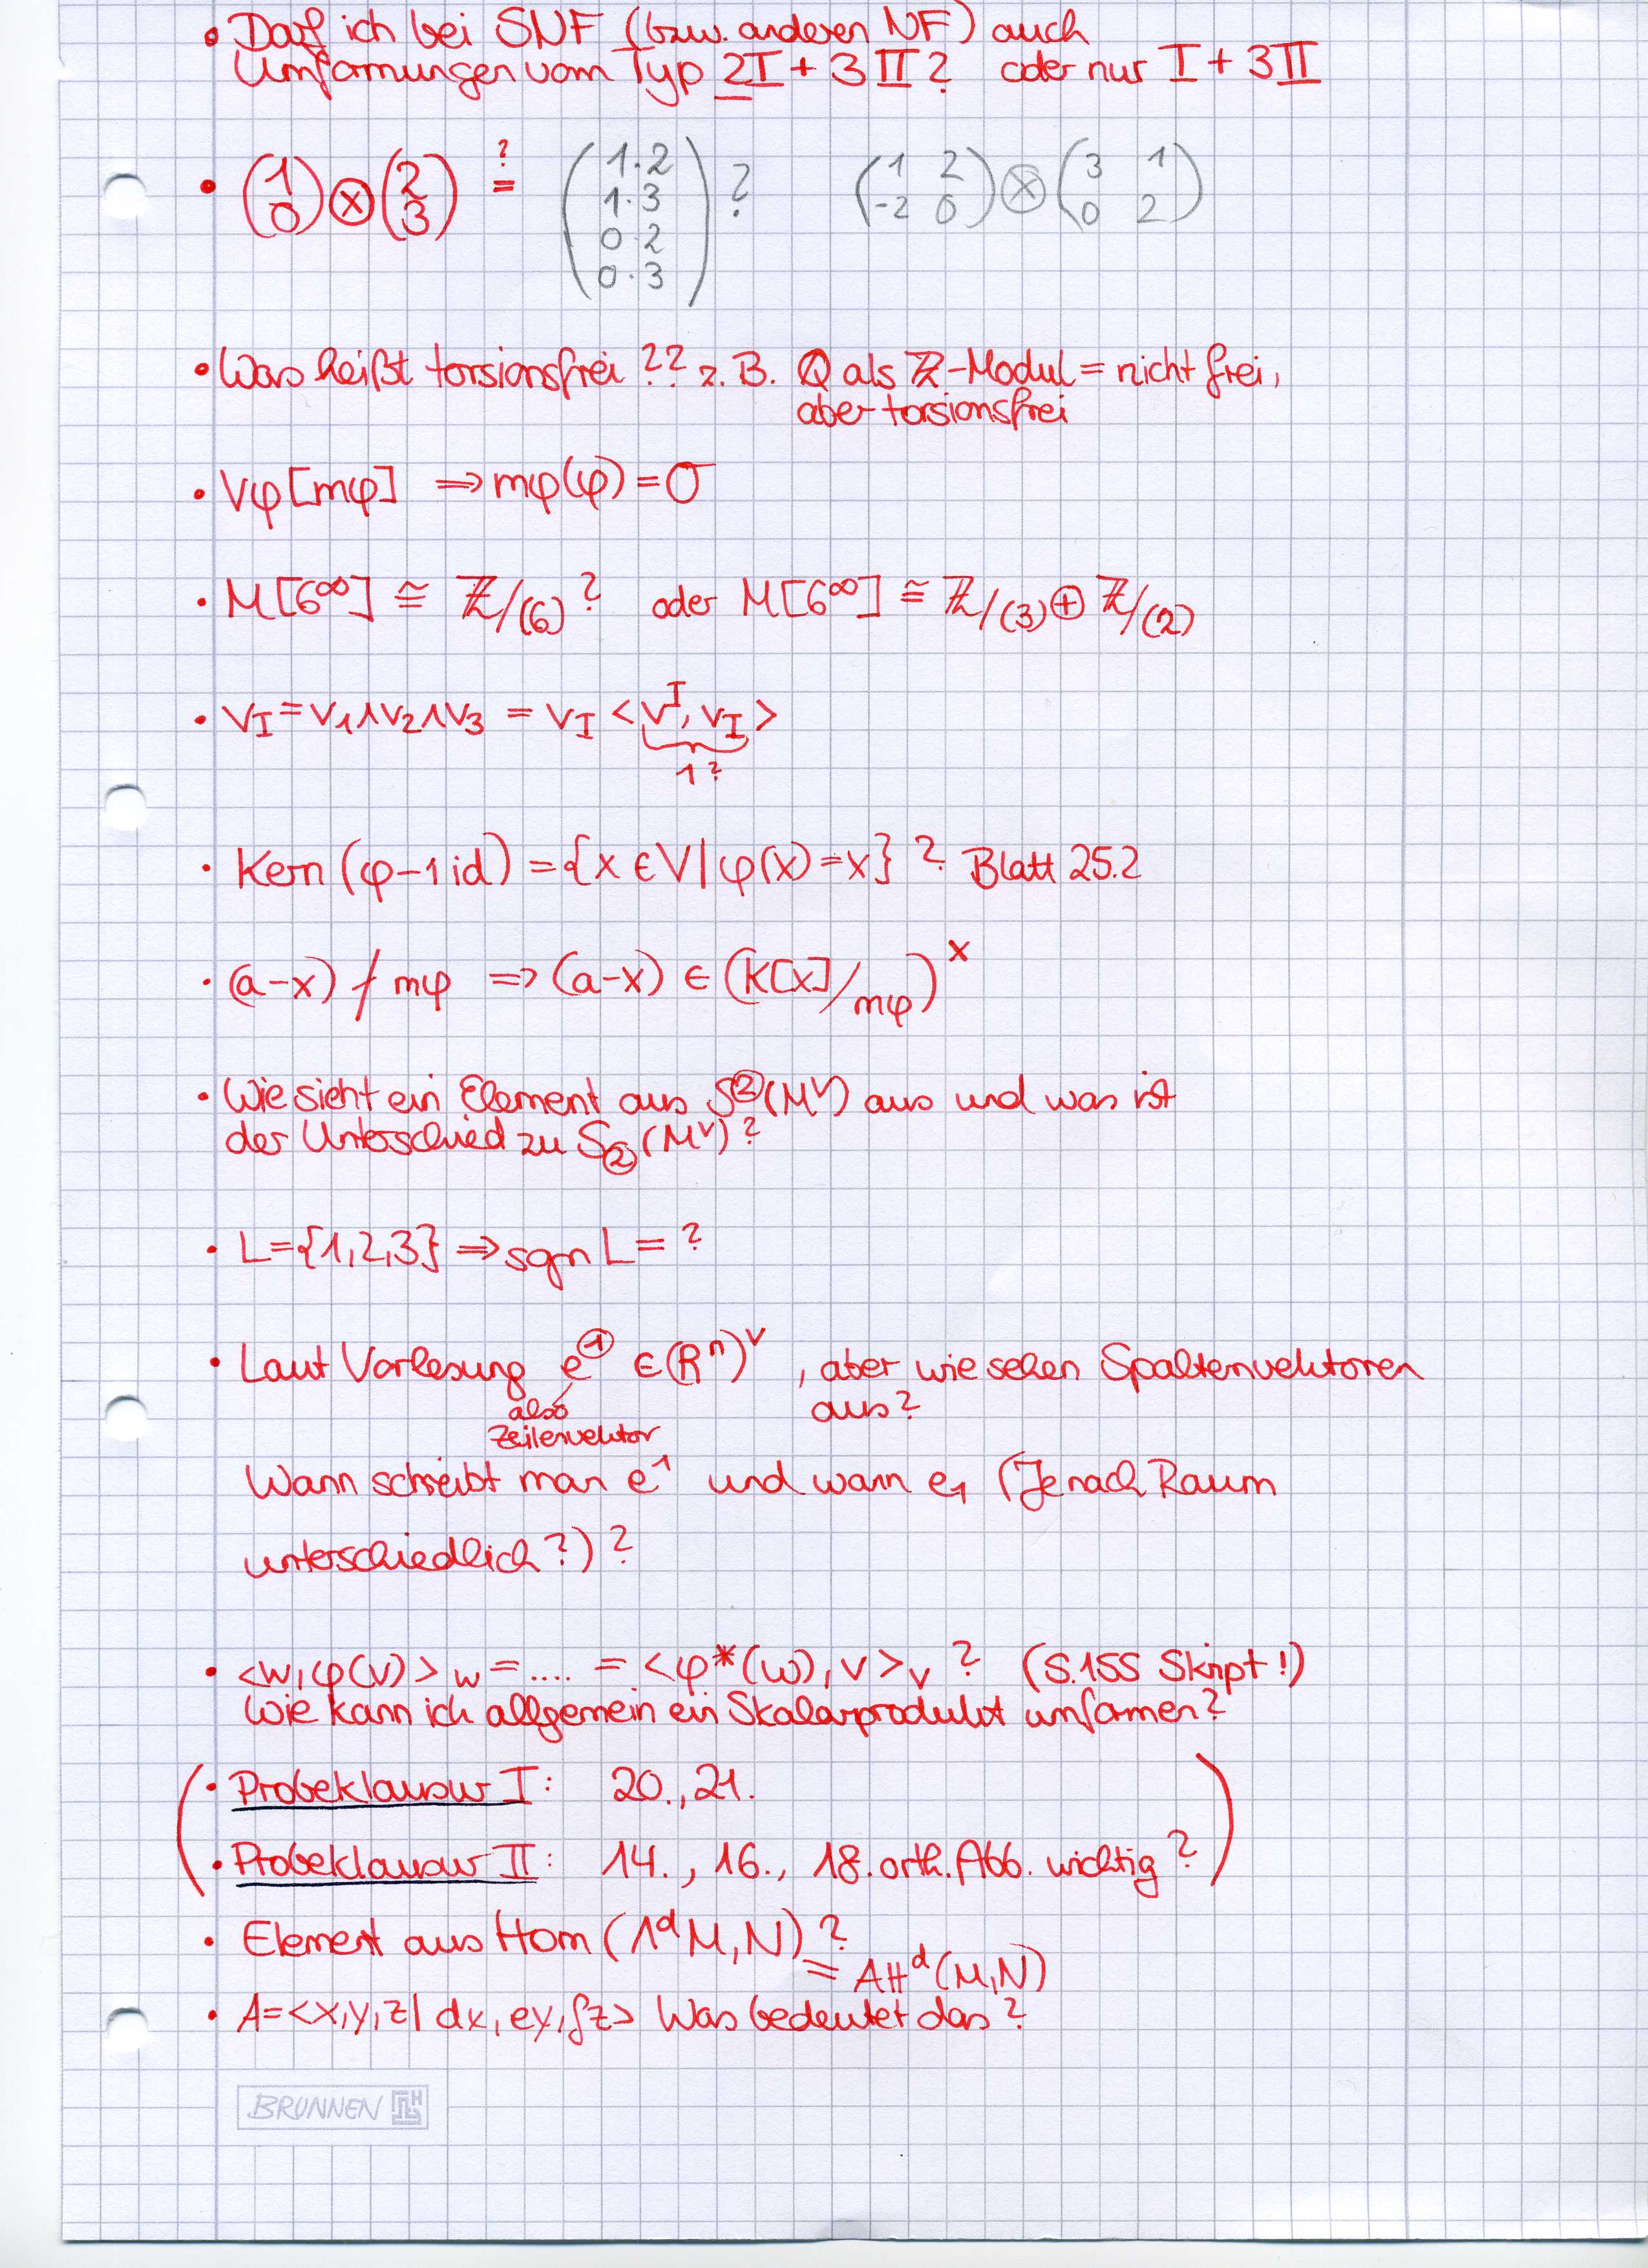 • Darf ich bei SNF (bzw. anderen NF) auch
Umformungen vom Typ 2I + 3II? oder nur I + 3II
• (1 0) ⊗ (2 3) ?= (1·2 1·3 0·2 0·3) ? (1 2 -2 0) ⊗ (3 1 0 2)
• Was heißt torsionsfrei ?? z.B. Q als ℤ-Modul = nicht frei,
aber torsionsfrei
• Vφ[mφ] ⇒ mφ(φ) = 0
• M[6^∞] ≅ ℤ/(6) ? oder M[6^∞] ≅ ℤ/(3) ⊕ ℤ/(2)
• v_I = v₁∧v₂∧v₃ = v_I <v^I, v_I>
1?
• Kern (φ-1id) = {x ∈ V | φ(x) = x} ? Blatt 25.2
• (a-x) ∤ mφ ⇒ (a-x) ∈ (K[x]/mφ)^×
• Wie sieht ein Element aus S²(M^∨) aus und was ist
der Unterschied zu S₂(M^∨)?
• L = {1,2,3} ⇒ sgn L = ?
• Laut Vorlesung e¹ ∈ (Rⁿ)^∨, aber wie sehen Spaltenvektoren
also aus?
Zeilenvektor
Wann schreibt man e¹ und wann e₁ (Je nach Raum
unterschiedlich?) ?
• <w,φ(v)>_w = .... = <φ*(w), v>_v ? (S.155 Skript!)
Wie kann ich allgemein ein Skalarprodukt umformen?
• Probeklausur I: 20., 21.
• Probeklausur II: 14., 16., 18. orth. Abb. wichtig ?
• Element aus Hom (Λ^d M, N) ?
= Alt^d (M,N)
• A = <x,y,z | dx, ey, fz> Was bedeutet das ?
BRUNNEN